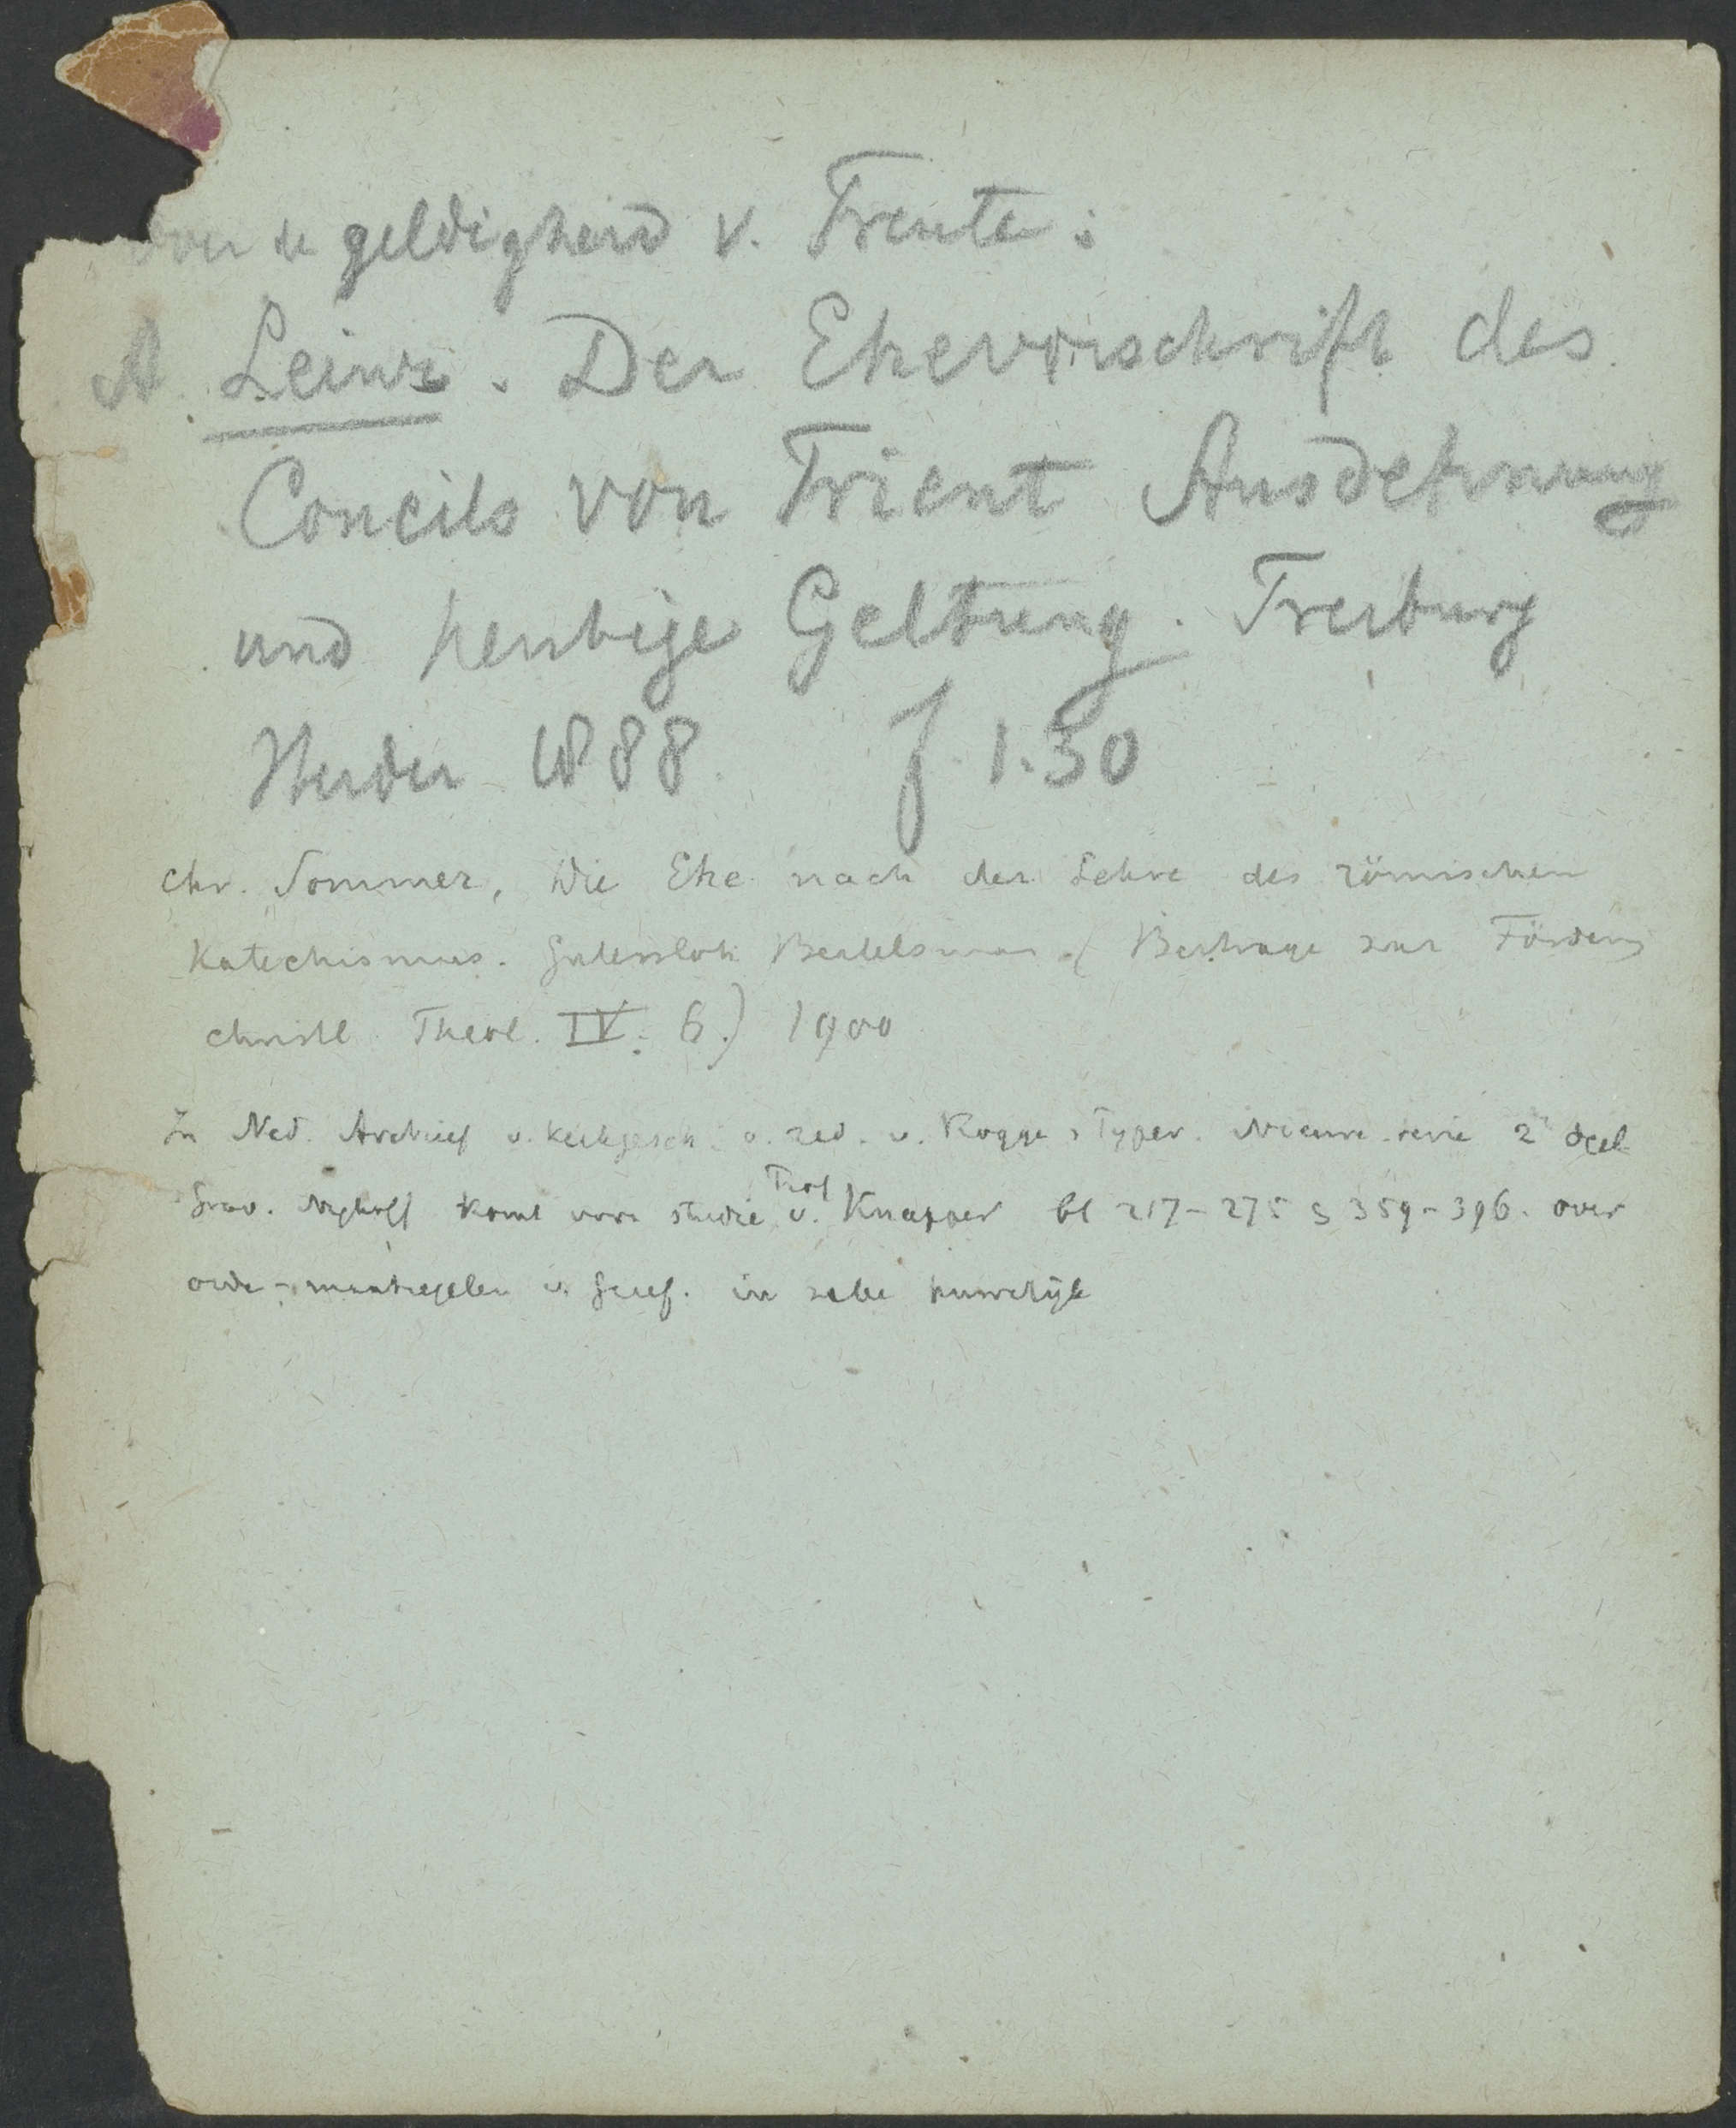 voor de geldigheid v. Trente:
A. Leinz. Der Ehevorschrift des
Concils von Trient Ausdehnung
und heutige Geltung. Freiburg
Herder 1888. f 1.30
Chr. Sommer, Die Ehe nach der Lehre des römischen
Katechismus. Gutersloh Bertelsman (Beitrage zur Förderung
christl. Theol. IV. 6.) 1900
In Ned. Archief v. kerkgesch. o. red. v. Rogge & Pyper. Nieuwe serie 2e deel
Grav. Nyhoff komt voor studie v. Prof Knapper bl 217-275 & 359-396. over
orde-maatregelen v. Geref. in zake huwelijk